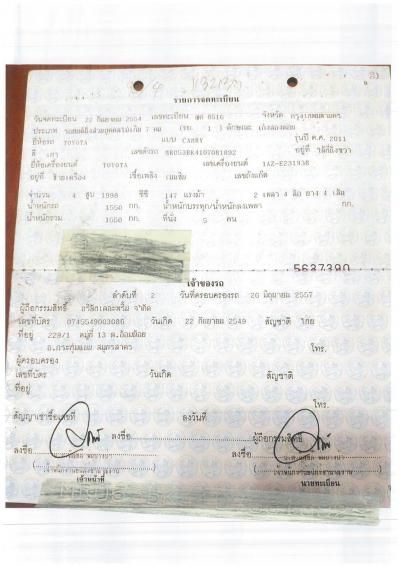 รายการจดทะเบียน
วันจดทะเบียน 22 กันยายน 2554 เลขทะเบียน 8516 จังหวัด กรุงเทพมหานคร
ประเภท รถยนต์นั่งส่วนบุคคลไม่เกิน 7 คน (รย. 1 ) ลักษณะ เก๋งสองตอน
ยี่ห้อรถ TOYOTA แบบ CAMRY รุ่นปี ค.ศ. 2011
สี เทา เลขตัวรถ
ยี่ห้อเครื่องยนต์ TOYOTA เลขเครื่องยนต์ 1AZ-E231938
อยู่ที่ เชื้อเพลิง เบนซิน เลขถังแก๊ส
จำนวน 4 สูบ 1998 ซีซี 147 แรงม้า 2 เพลา 4 ล้อ ยาง 4 เส้น
น้ำหนักรถ 1550 กก. น้ำหนักบรรทุก/น้ำหนักลงเพลา กก.
น้ำหนักรวม 1550 กก. ที่นั่ง 5 คน
5637390
เจ้าของรถ
ลำดับที่ 2 วันที่ครอบครองรถ 26 มิถุนายน 2557
ผู้ถือกรรมสิทธิ์ จำกัด
เลขที่บัตร 0745549003086 วันเกิด 22 กันยายน 2549 สัญชาติ ไทย
ที่อยู่ 229/1 หมู่ที่ 13 ต.อ้อมน้อย
อ.กระทุ่มแบน สมุทรสาคร โทร.
ผู้ครอบครอง
เลขที่บัตร วันเกิด สัญชาติ
ที่อยู่
โทร.
สัญญาเช่าซื้อเลขที่ ลงวันที่
ลงชื่อ ผู้ถือกรรมสิทธิ์
ลงชื่อ ลงชื่อ
เจ้าหน้าที่ นายทะเบียน